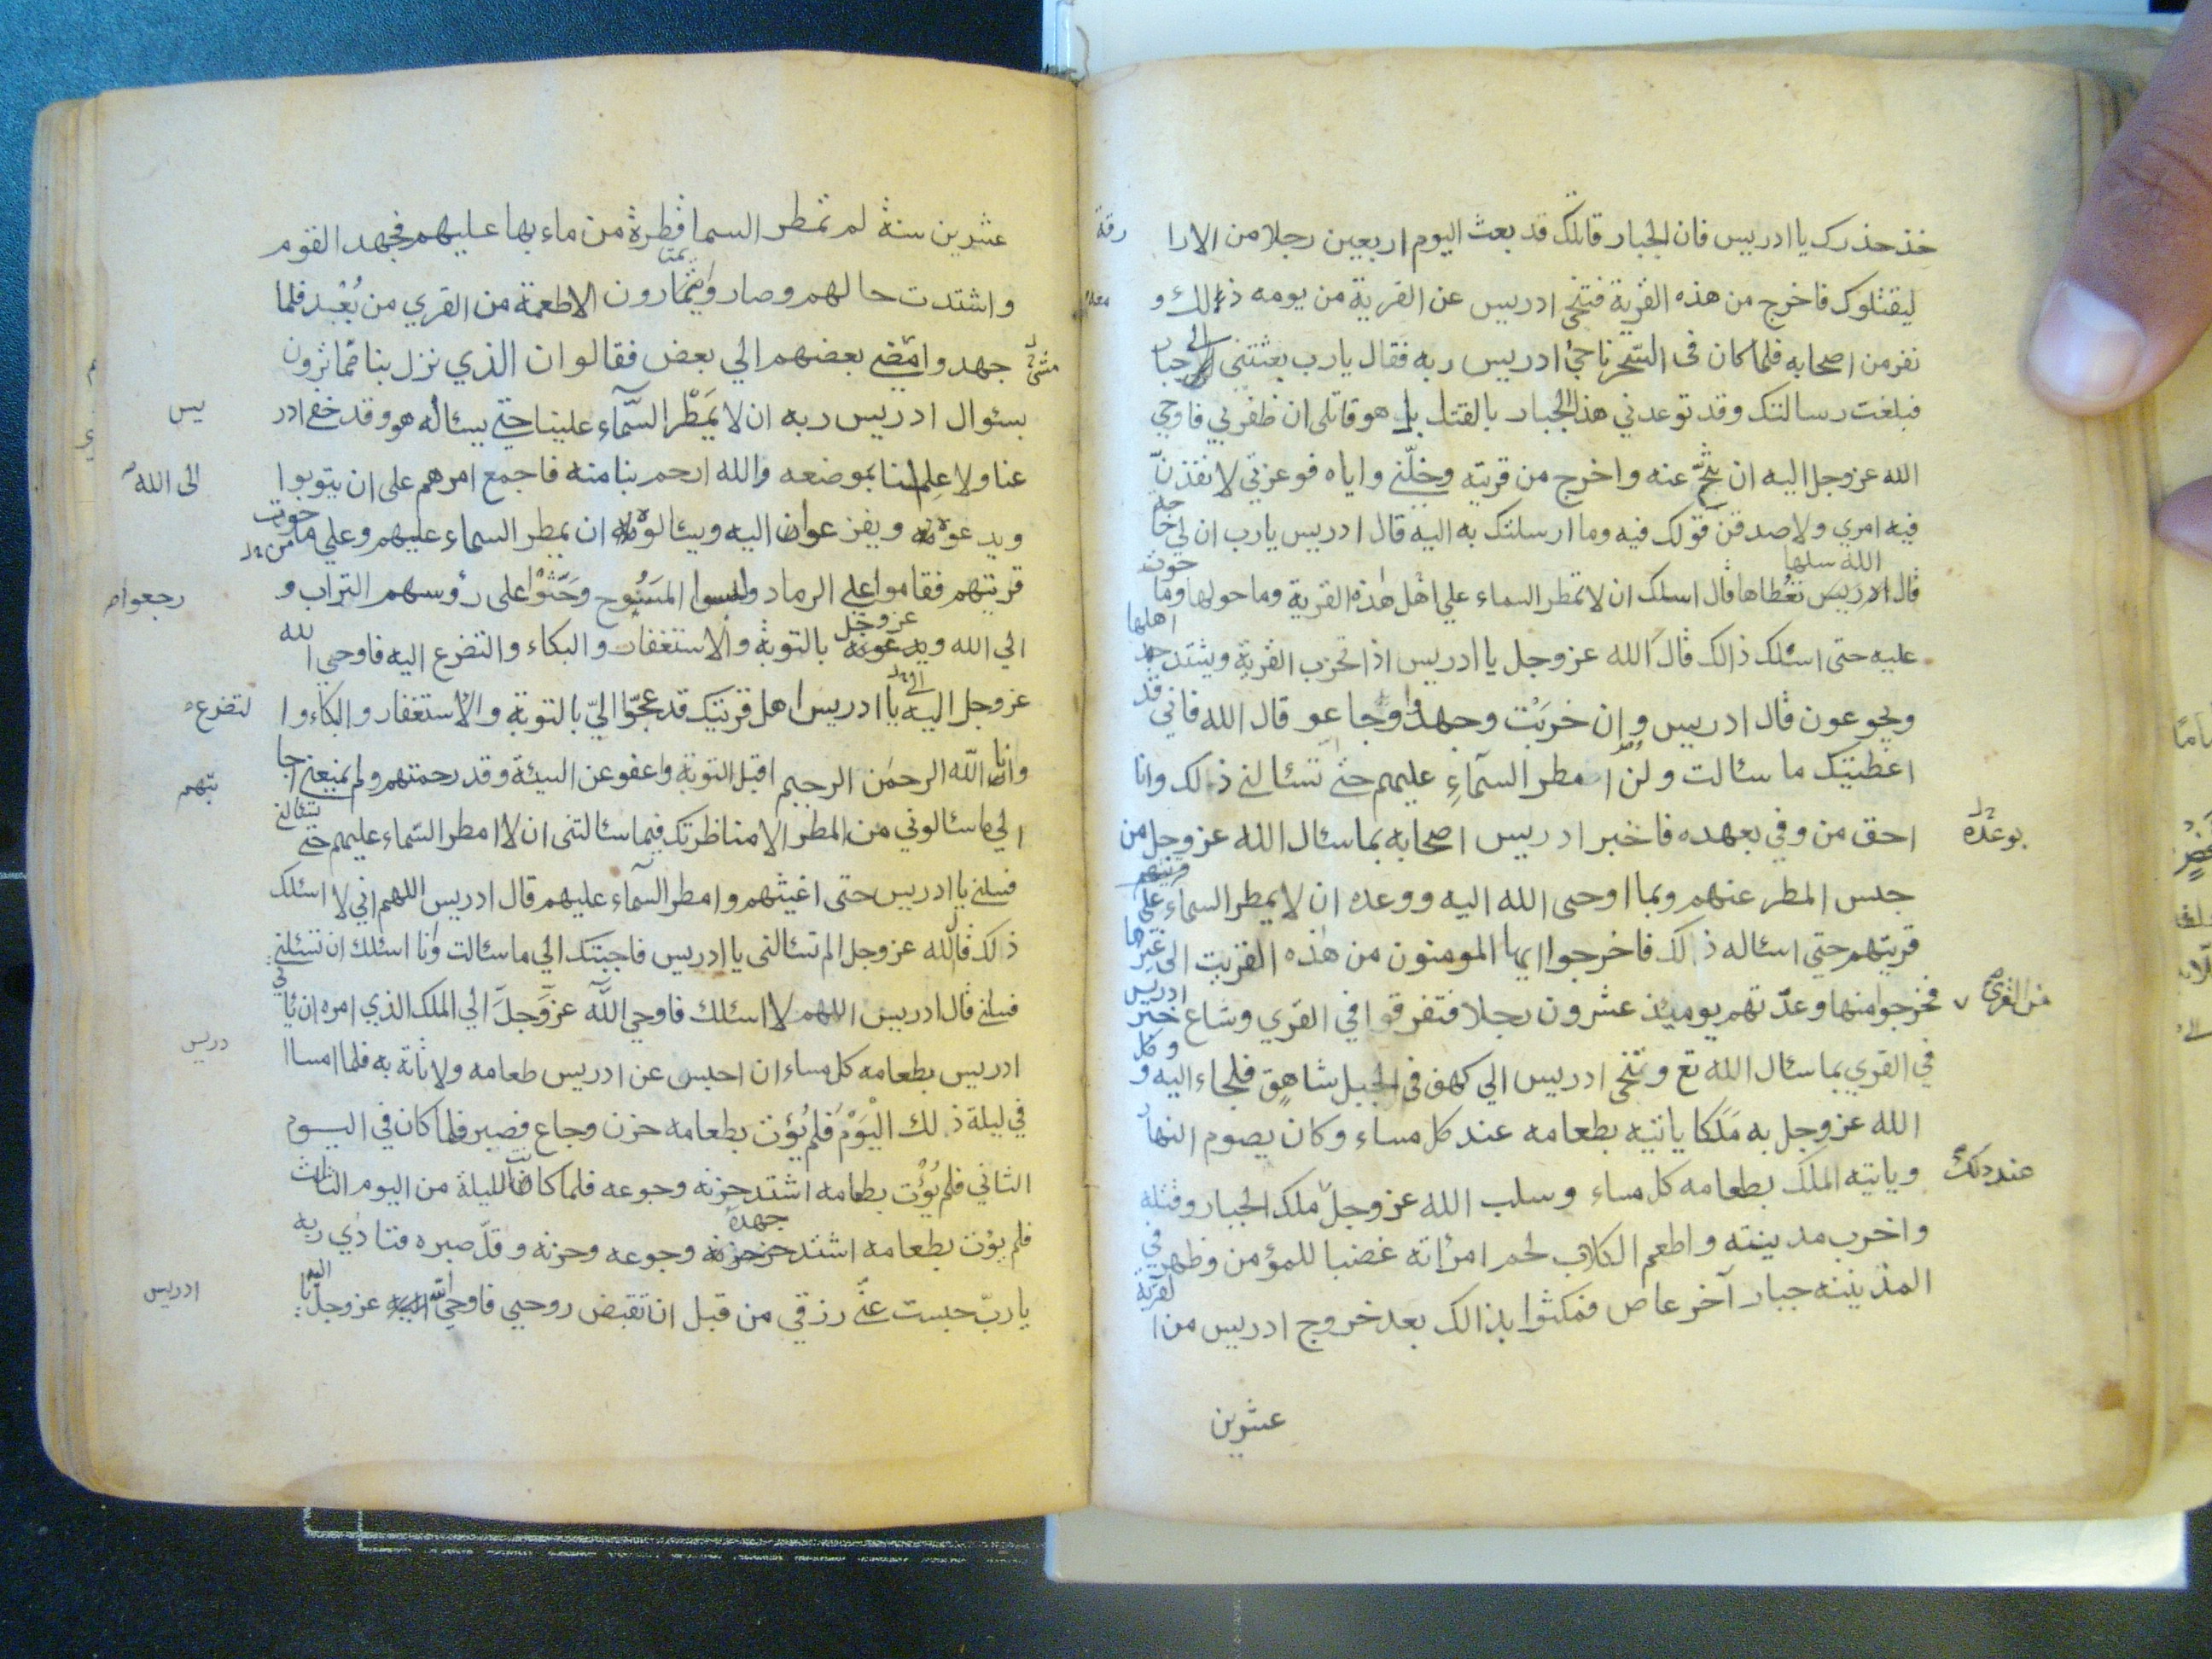 خذ حذرك يا ادريس فان الجبار قاتلك قد بعث اليوم اربعين رجلا من الارا
رقة
ليقتلوك فاخرج من هذه القرية فتنحى ادريس عن القرية من يومه ذلك و
معه
نفر من اصحابه فلما كان فى السحر ناجى ادريس ربه فقال يا رب بعثتنى الى جبار
فبلغت رسالتك وقد توعدني هذا الجبار بالقتل بل هو قاتلى ان ظفر بي فاوحي
الله عز وجل اليه ان تنح عنه واخرج من قريته وخلّني واياه فوعزتي لانفذنّ
فيه امري ولاصدقن قولك فيه وما ارسلتك به اليه قال ادريس يا رب ان لي حاجة
قال الله سلها تعطاها قال اسلك ان لا تمطر السماء علي اهل هذه القرية وما حولها وما حوت
عليه حتى اسئلك ذالك قال الله عز وجل يا ادريس اذا تخرب القرية ويشتد جهد اهلها
ويجوعون قال ادريس وان خربت وجهدوا وجاعو قال الله فاني قد
اعطيتك ما سئالت ولن امطر السمآء عليهم حتى تسئالني ذلك وانا
احق من وفي بعهده فاخبر ادريس اصحابه بما سئال الله عز وجل من
بوعده
حبس المطر عنهم وبما اوحى الله اليه ووعده ان لا يمطر السماء على
قريتهم حتى اسئاله ذلك فاخرجوا ايها المومنون من هذه القريت الى غيرها
من القرى
فخرجوا منها وعدّتهم يوميئذ عشرون رجلا فتفرقوا في القري وشاع خبر ادريس
في القري بما سئال الله تع وتنحى ادريس الي كهف فى الجبل شاهق فلجاء اليه و وكل
الله عز وجل به مَلَكا ياتيه بطعامه عند كل مساء وكان يصوم النهار
وياتيه الملك بطعامه كل مساء وسلب الله عز وجل ملك الجبار وقتله
عند ذلك
واخرب مدينته واطعم الكلاب لحم امرأته غضبا للمؤمن وظهر في
المدينة جبار آخر عاص فمكثوا بذالك بعد خروج ادريس من القرية
عشرين
عشرين سنة لم تمطر السما قطرة من ماءها عليهم فجهد القوم
واشتدت حالهم وصاروا يمتارون الاطعمة من القري من بُعْد فلما
جهدوا مشى بعضهم الي بعض فقالوا ان الذي نزل بنا مما ترون
بسئوال ادريس ربه ان لا يمطر السّمآء علينا حتي يسئاله هو وقد خفي ادر
يس
عنا ولا علم لنا بموضعه والله ارحم بنا منه فاجمع امرهم على ان يتوبوا
الى الله
ويدعوه ويفزعوا اليه ويسئالوه ان يمطر السماء عليهم وعلي ما حوت
قريتهم فقاموا على الرماد ولبسوا المسُوح وحَثَوْا على رؤسهم التراب و
رجعوا
الي الله عز وجل بالتوبة والاستغفار والبكاء والتضرع اليه فاوحى الله
عز وجل اليه يا ادريس اهل قريتك قد عجّوا اليّ بالتوبة والاستغفار والبكاء وا
لتضرع
وانا الله الرحمن الرحيم اقبل التوبة واعفو عن السيئة وقد رحمتهم ولم يمنعني اجا
بتهم
الي ما سئالوني من المطر الا مناظرتك فيما سئالتنى ان لا امطر السّماء عليهم حتى تسئالني
فسلني يا ادريس حتى اغيثهم وامطر السمآء عليهم قال ادريس اللهم اني لا اسئلك
ذلك قال الله عز وجل الم تسئالنى يا ادريس فاجبتك الي ما سئالت وانا اسئلك ان تسئلني
فسلني قال ادريس اللهم لا اسئلك فاوحي اللّه عزّ وجلّ الي الملك الذي امره ان يأتي
ادريس بطعامه كل مساء ان احبس عن ادريس طعامه ولا تاته به فلما امسا ا
دريس
في ليلة ذلك اليَوْم فلم يُؤْت بطعامه حزن وجاع فصبر فلما كان في اليوم
الثاني فلم يُؤْت بطعامه اشتد حزنه وجوعه فلما كانت الليلة من اليوم الثالث
فلم يؤت بطعامه اشتد جهده وجوعه وحزنه وقلّ صبره فنادي ربه
يا ربّ حبست عنّي رزقي من قبل ان تقبض روحي فاوحى اللّه عز وجل اليه يا
ادريس